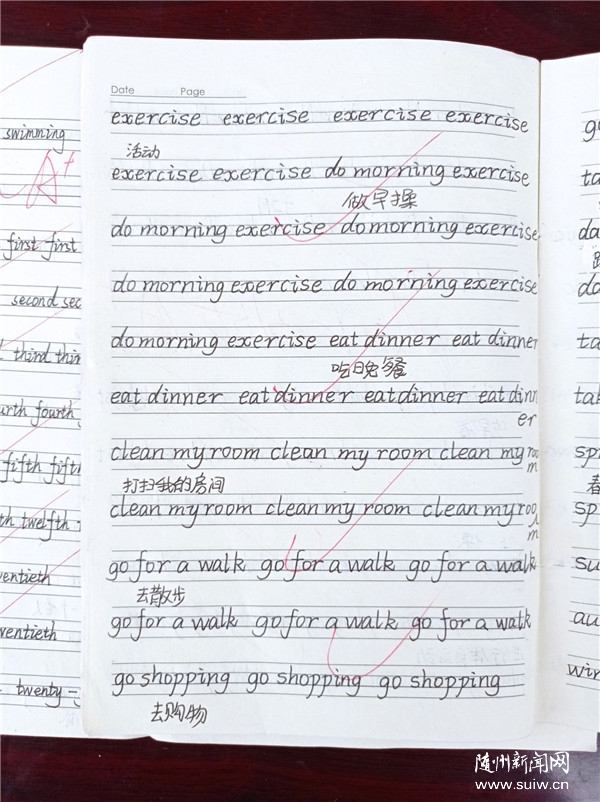 Date Page
exercise exercise exercise exercise
活动
exercise exercise do morning exercise
做早操
do morning exercise do morning exercise
do morning exercise do morning exercise
do morning exercise eat dinner eat dinner
吃晚餐
eat dinner eat dinner eat dinner eat dinn
er
clean my room clean my room clean my roo
m
打扫我的房间
clean my room clean my room clean my roo
m
go for a walk go for a walk go for a walk
去散步
go for a walk go for a walk go for a walk
go shopping go shopping go shopping
去购物
swimming
A+
first first
second sec
third thir
urth fourth
fifth fifth
th twelfth
wentieth
wentieth
twenty-
go
ta
da
da
ta
tak
spr
春
sp
su
au
win
随州新闻网
www.suiw.cn